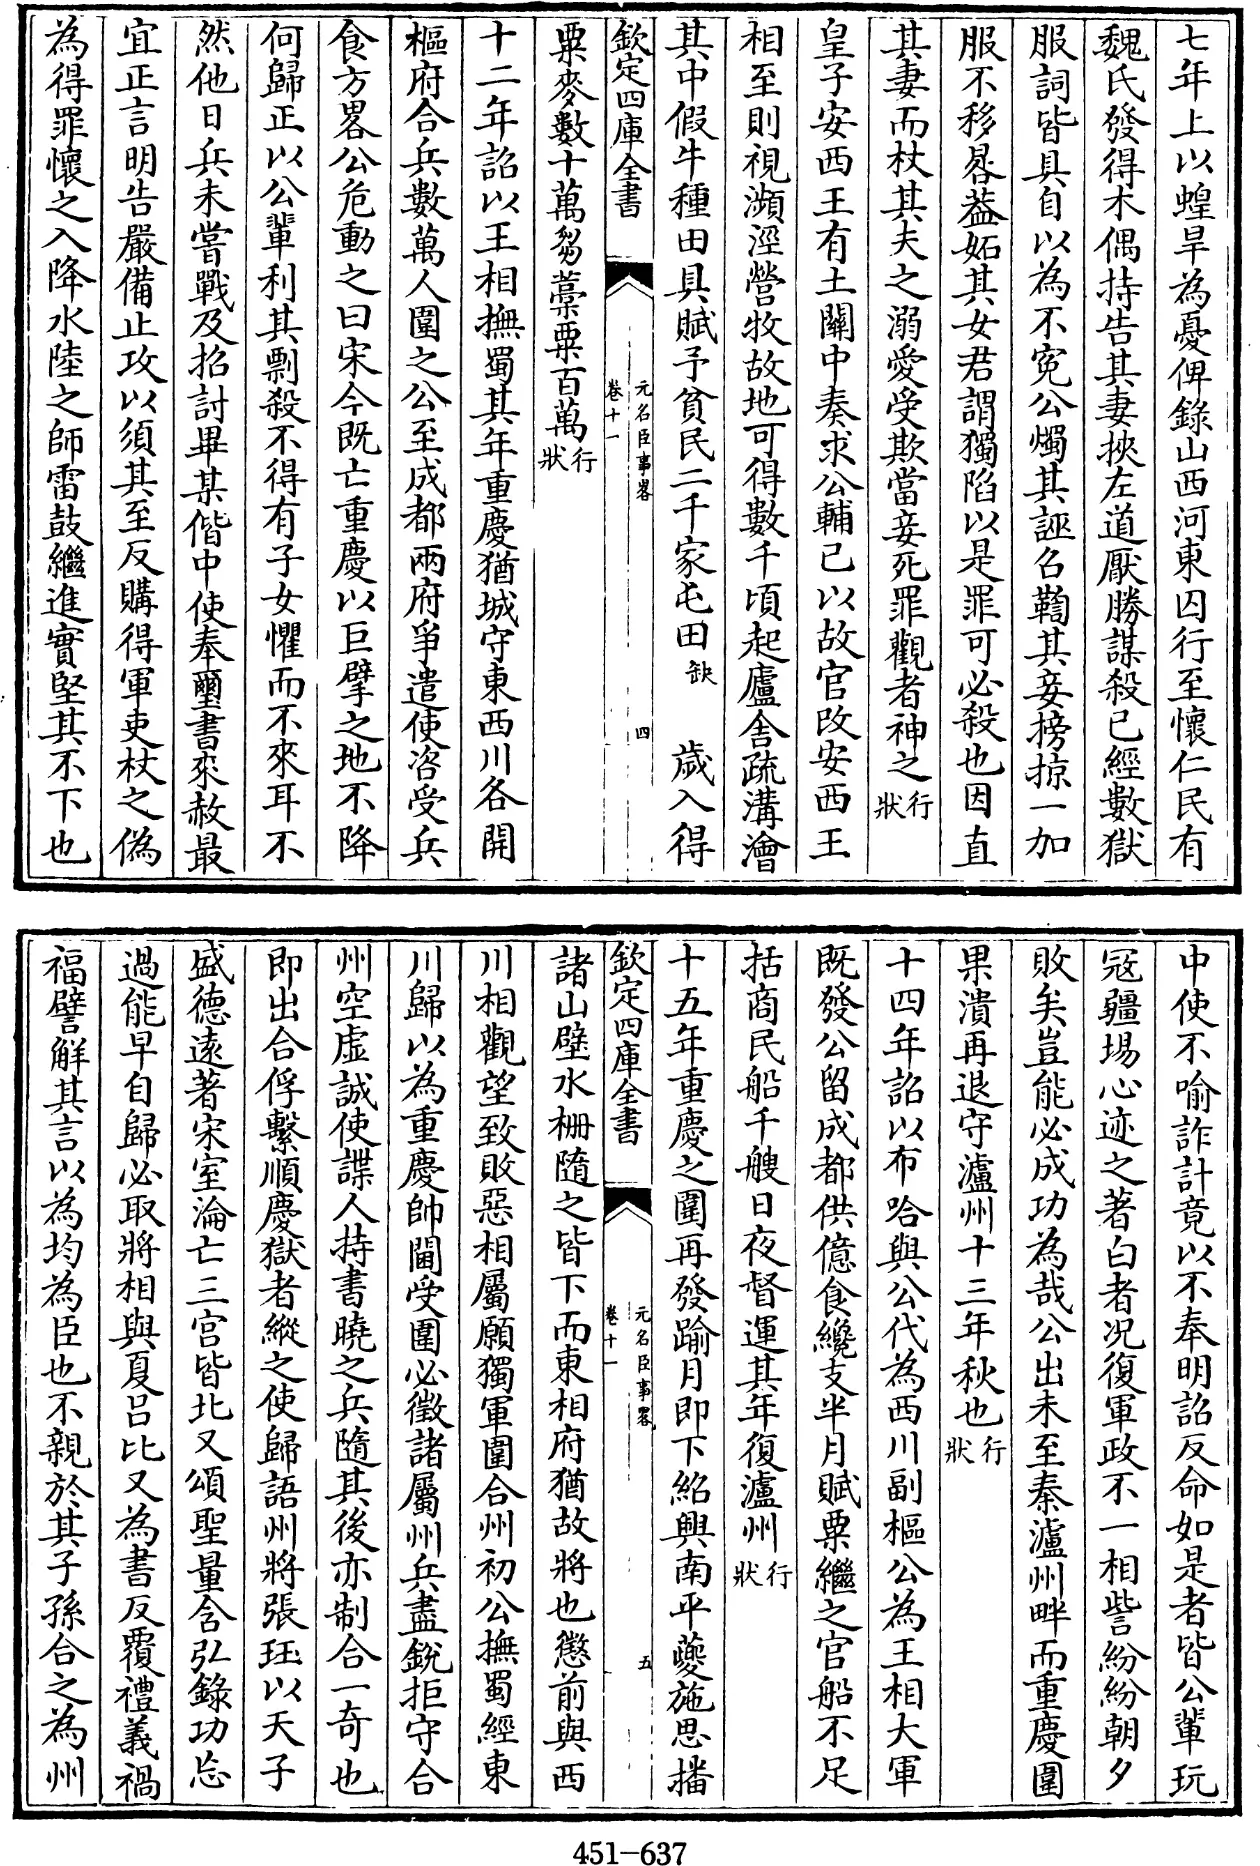 七年上以蝗旱為憂俾錄山西河東囚行至懷仁民有
魏氏發得木偶持告其妻挾左道厭勝謀殺已經數獄
服詞皆具自以為不寃公燭其誣召鞫其妾搒掠一加
服不移晷葢妬其女君謂獨陷以是罪可必殺也因直
其妻而杖其夫之溺愛受欺當妾死罪觀者神之行狀
皇子安西王有土關中奏求公輔已以故官改安西王
相至則視瀕涇營牧故地可得數千頃起廬舍疏溝澮
其中假牛種田具賦予貧民二千家屯田缺 歲入得
欽定四庫全書
元名臣事畧
卷十一
四
粟麥數十萬芻藁粟百萬行狀
十二年詔以王相撫蜀其年重慶猶城守東西川各開
樞府合兵數萬人圍之公至成都兩府爭遣使咨受兵
食方畧公危動之曰宋今既亡重慶以巨擘之地不降
何歸正以公輩利其剽殺不得有子女懼而不來耳不
然他日兵未嘗戰及招討畢某偕中使奉璽書來赦最
宜正言明告嚴備止攻以須其至反購得軍吏杖之偽
為得罪懷之入降水陸之師雷鼓繼進實堅其不下也
中使不喻詐計竟以不奉明詔反命如是者皆公輩玩
冦疆埸心迹之著白者况復軍政不一相訾紛紛朝夕
敗矣豈能必成功為哉公出未至秦瀘州畔而重慶圍
果潰再退守瀘州十三年秋也行狀
十四年詔以布哈與公代為西川副樞公為王相大軍
既發公留成都供億食纔支半月賦粟繼之官船不足
括商民船千艘日夜督運其年復瀘州行狀
十五年重慶之圍再發踰月即下紹興南平夔施思播
欽定四庫全書
元名臣事畧
卷十一
五
諸山壁水柵隨之皆下而東相府猶故將也懲前與西
川相觀望致敗惡相屬願獨軍圍合州初公撫蜀經東
川歸以為重慶帥閫受圍必徵諸屬州兵盡銳拒守合
州空虛誠使諜人持書曉之兵隨其後亦制合一奇也
即出合俘繫順慶獄者縱之使歸語州將張珏以天子
盛德遠著宋室淪亡三宫皆北又頌聖量含弘錄功忘
過能早自歸必取將相與夏吕比又為書反覆禮義禍
福譬解其言以為均為臣也不親於其子孫合之為州
451-637